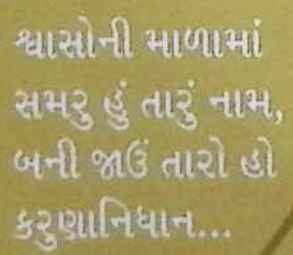 શ્વાસોની માળામાં
સમરુ હું તારું નામ,
બની જાઉં તારો હો
કરુણાનિધાન...